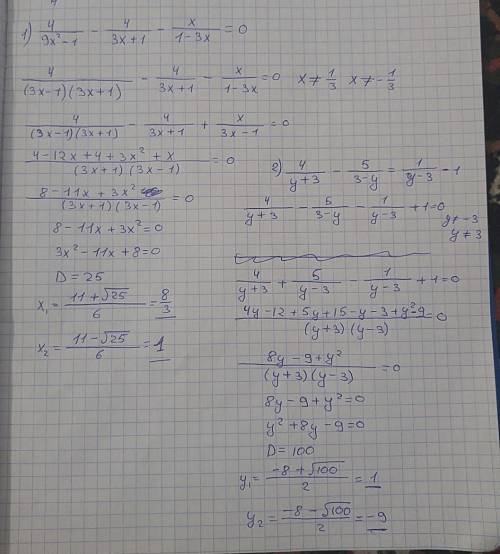 1) 4/(9x²-1) - 4/(3x+1) - x/(1-3x) = 0
4/((3x-1)(3x+1)) - 4/(3x+1) - x/(1-3x) = 0   x ≠ 1/3   x ≠ -1/3
4/((3x-1)(3x+1)) - 4/(3x+1) + x/(3x-1) = 0
(4-12x+4+3x²+x)/((3x+1)(3x-1)) = 0
(8-11x+3x²)/((3x+1)(3x-1)) = 0
8-11x+3x²=0
3x²-11x+8=0
D=25
x₁ = (11+√25)/6 = 8/3
x₂ = (11-√25)/6 = 1
2) 4/(y+3) - 5/(3-y) = 1/(y-3) - 1
4/(y+3) - 5/(3-y) - 1/(y-3) + 1=0
y≠-3
y≠3
4/(y+3) + 5/(y-3) - 1/(y-3) + 1=0
(4y-12+5y+15-y-3+y²-9)/((y+3)(y-3)) = 0
(8y-9+y²)/((y+3)(y-3)) = 0
8y-9+y²=0
y²+8y-9=0
D=100
y₁ = (-8+√100)/2 = 1
y₂ = (-8-√100)/2 = -9